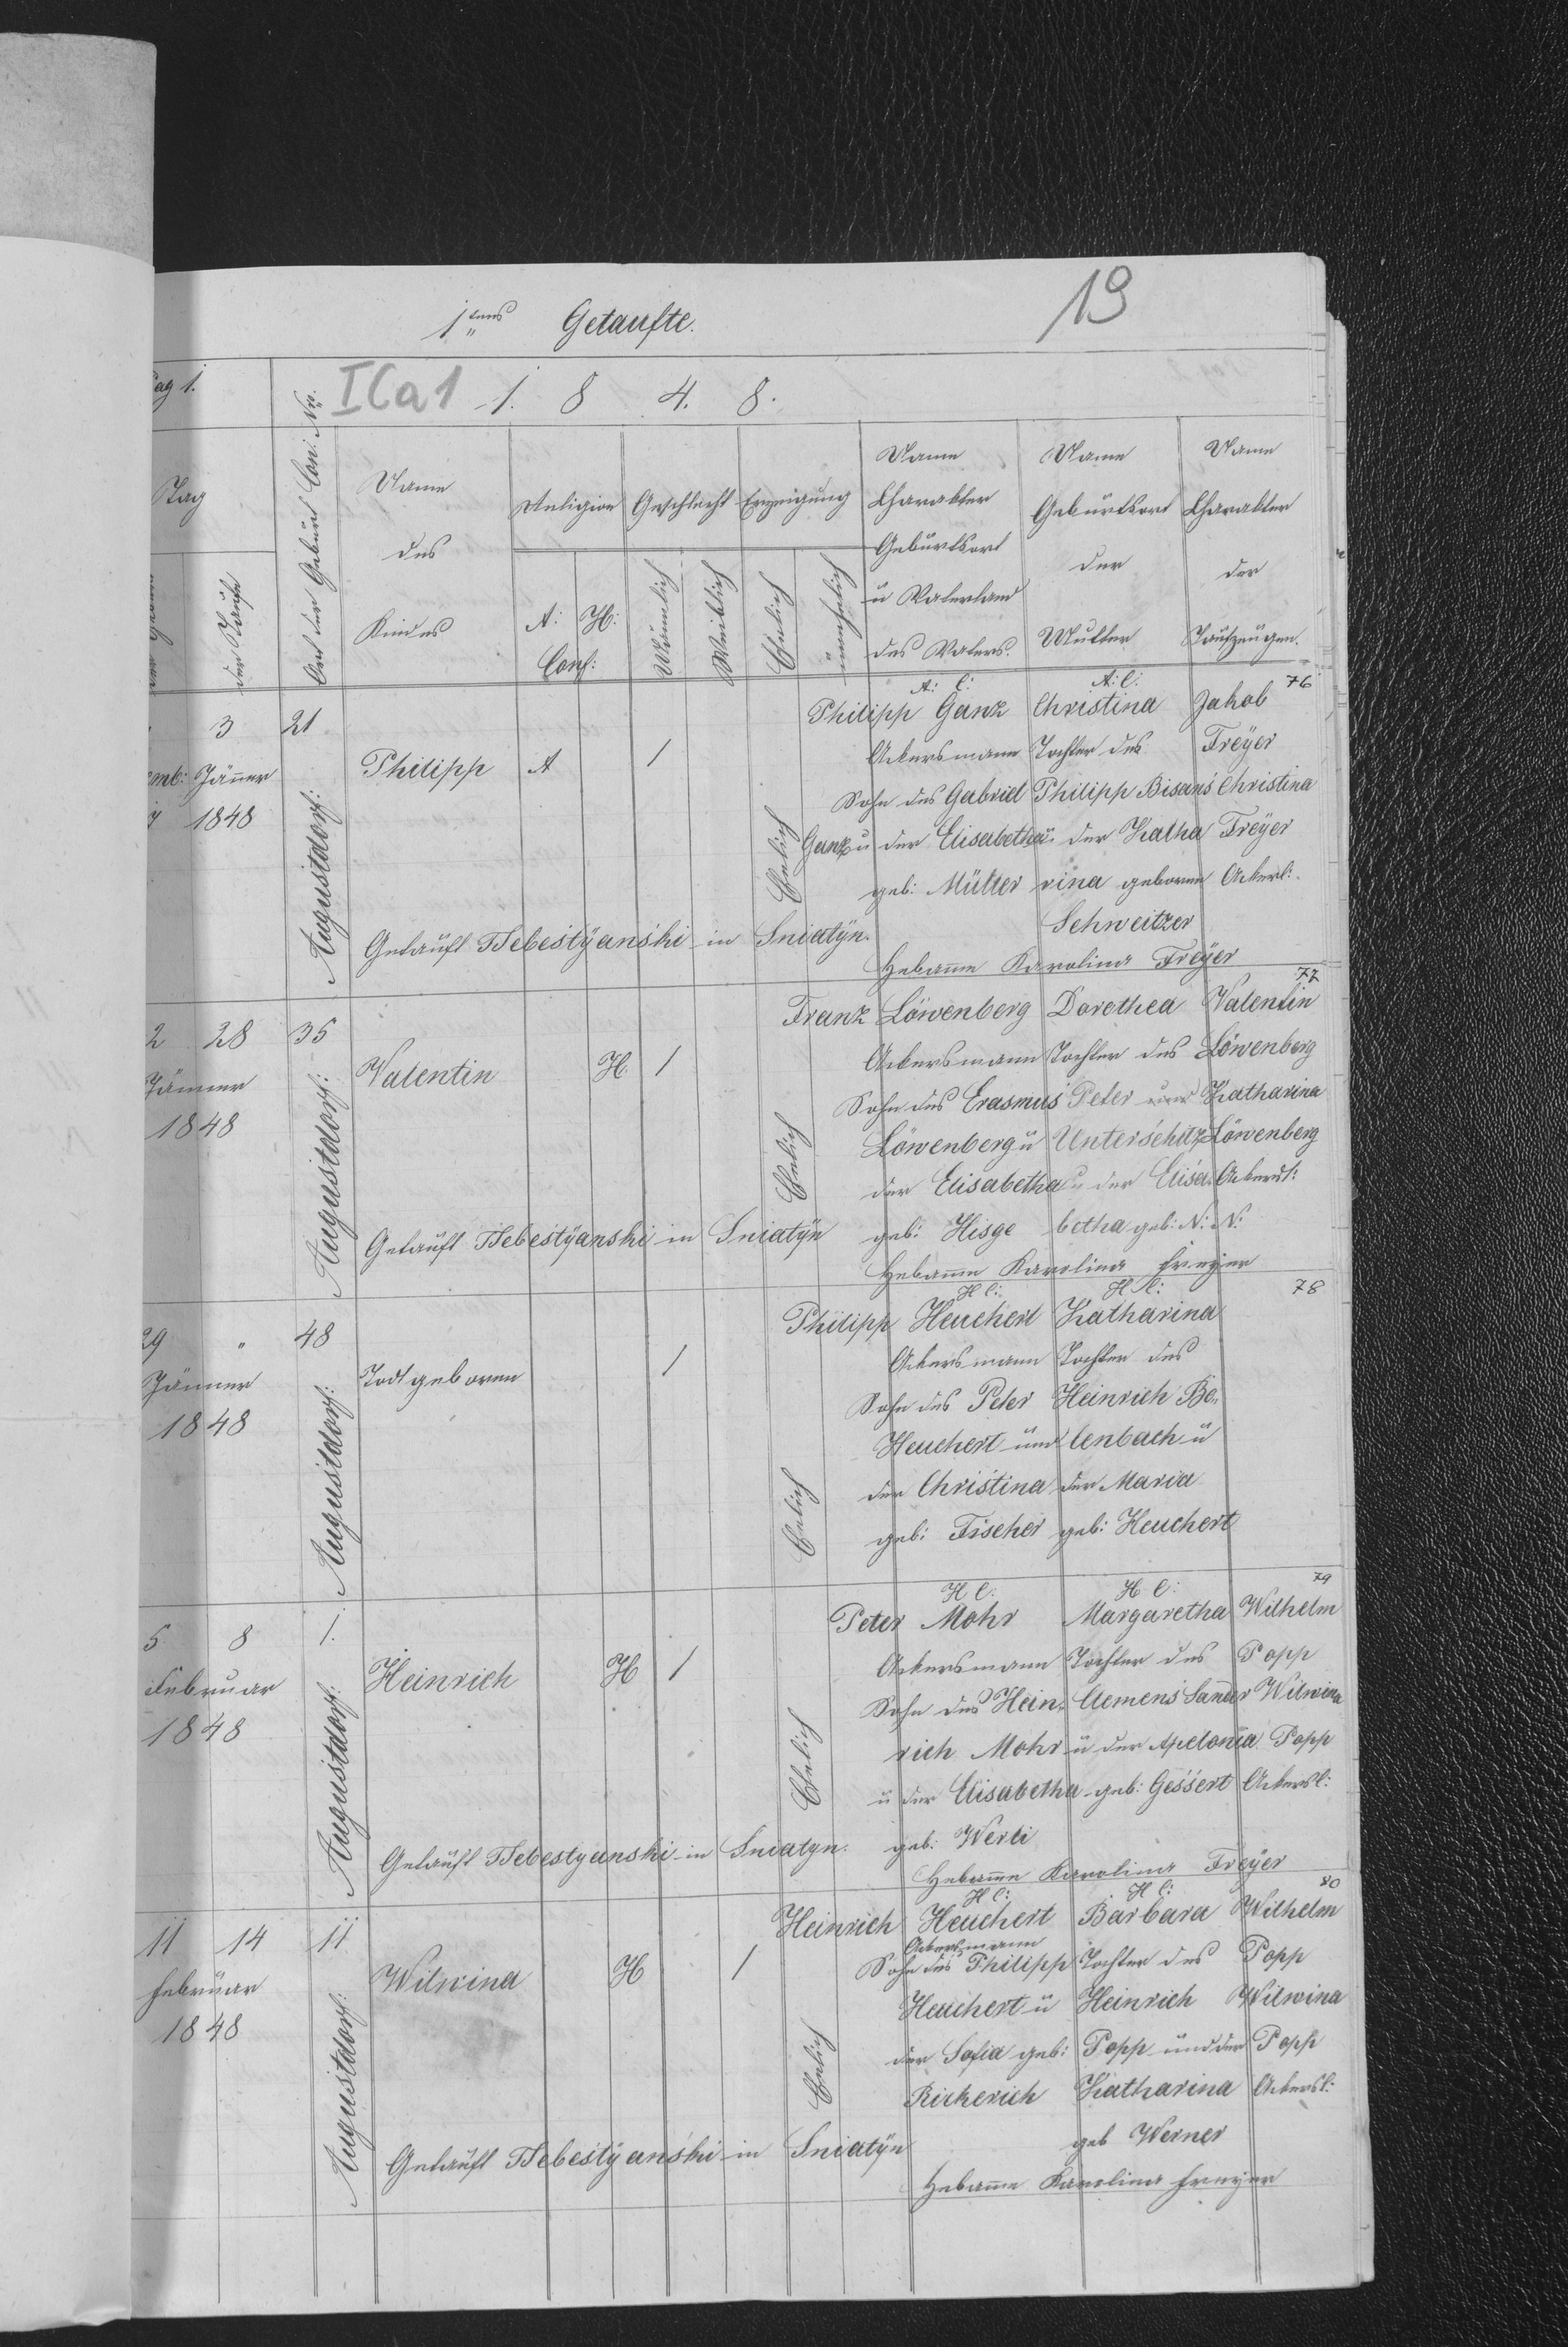 1tens Getaufte.
19
Pag 1.
ICa1 1. 8 4. 8.
Tag
der Geburt
der Taufe
Ort der Geburt Con: Nr.
Name des Kindes
Religion
A: H:
Conf:
Geschlecht
Mänlich
Weiblich
Erzeigung
Ehelich
unehelich
Name Charakter Geburtsort u Vaterland des Vaters.
Name Geburtsort der Mutter
Name Charakter der Taufzeugen.
A: C: A: C: 76
Philipp Ganz Christina Jakob
3 21
Ackersmann Tochter des Freÿer
emb: Jänner Philipp A 1
Sohn des Gabriel Philipp Bisans Christina
1848 Augustdorf: Ehelich
Ganz u der Elisabetha u der Katha Freÿer
geb: Müller rina geboren Ackersl:
Schweitzer
Getauft Bebestÿanski in Sniatÿn.
Hebamme Karolina Freÿer
77
Franz Löwenberg Dorethea Valentin
2 28 35
Ackersmann Tochter des Löwenberg
Jänner Valentin H. 1
Sohn des Erasmus Peter und Katharina
1848 Augustdorf: Ehelich
Löwenberg u Unterschitz Löwenberg
der Elisabetha u der Elisa Ackersl:
Getauft Bebestÿanski in Sniatÿn geb: Hisge betha geb: N: N:
Hebamme Karolina Freÿer
H C: H C: 78
Philipp Heuchert Katharina
29 " 48
Ackersmann Tochter des
Jänner Todtgeboren 1
Sohn des Peter Heinrich Be,,
1848 Augustdorf: Ehelich
Heuchert und lenbach u
der Christina der Maria
geb: Fischer geb: Heuchert
H C: H C: 79
Peter Mohr Margaretha Wilhelm
5 8 1.
Ackersmann Tochter des Popp
Februar Heinrich H 1
Sohn des Hein,, Clemens Sander Wilwina
1848 Augustdorf: Ehelich
rich Mohr u der Apelonia Popp
u der Elisabetha geb: Gessert Ackersl:
Getauft Bebestyanski in Sniatyn. geb: Werli
Hebamme Karolina Freÿer
H C: H C: 80
Heinrich Heuchert Barbara Wilhelm
Ackersmann
11 14 11
Sohn des Philipp Tochter des Popp
Februar Wilwina H 1
Heuchert u Heinrich Wilwina
1848 Augustdorf: Ehelich
der Sofia geb: Popp und der Popp
Rickerich Katharina Ackersl:
Getauft Bebestÿanski in Sniatÿn geb Werner
Hebamme Karolina Freÿer